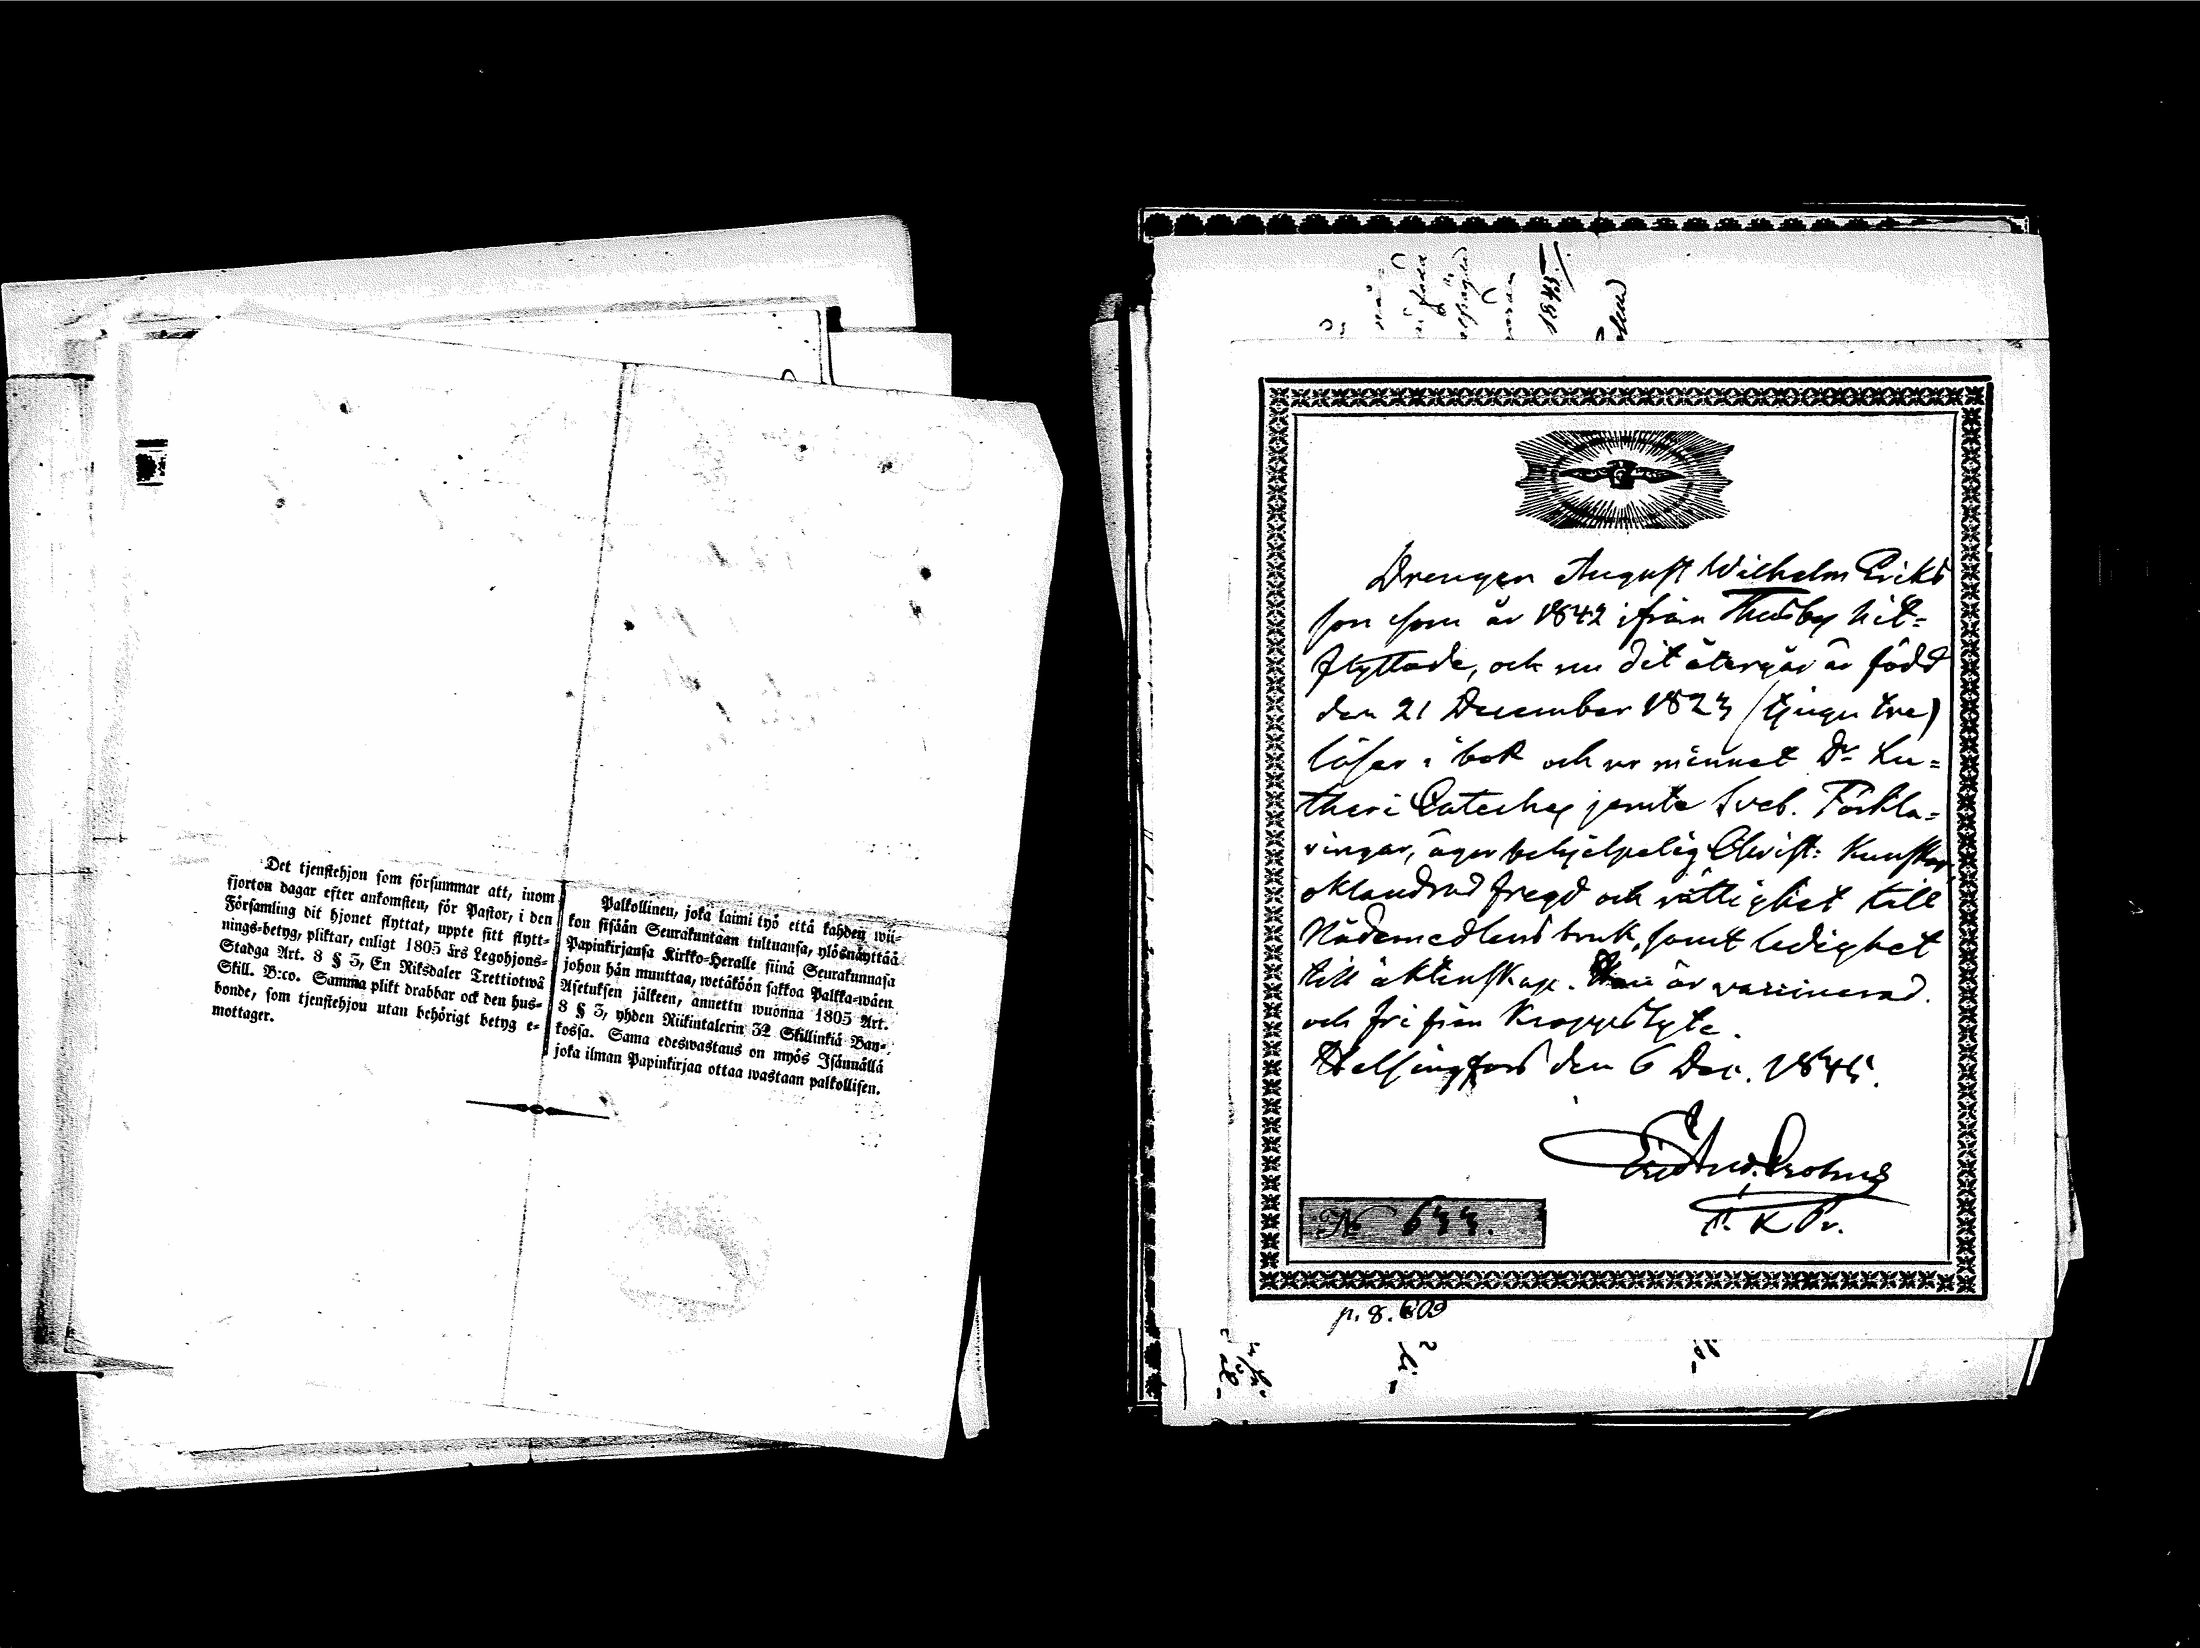 Det tjenstehjon som försummar att, inom
fjorton dagar efter ankomsten, för Pastor, i den
Församling dit hjonet flyttat, uppte sitt flytt-
nings-betyg, pliktar, enligt 1805 års Legohjons-
Stadga Art. 8 § 3, En Riksdaler Trettiotwå
Skill. B:co. Samma plikt drabbar ock den hus-
bonde, som tjenstehjon utan behörigt betyg e-
mottager.
Palkollinen, joka laimi lyö että kahden wii-
kon sisään Seurakuntaan tultuansa, ylösnäyttää
Papinkirjansa Kirkko-Heralle siinä Seurakunnasa
johon hän muuttaa, wetäköön sakkoa Palkka-wäen
Asetuksen jälkeen, annettu wuonna 1805 Art.
8 § 3, yhden Riikintalerin 32 Skillinkiä Ban-
kossa. Sama edeswastaus on myös Isännällä
joka ilman Papinkirjaa ottaa wastaan palkollisen.
1845
Drengen August Wilhelm Eriks
son som år 1842 ifrån Thusby hit=
flyttade, och nu dit återgår är född
den 21 December 1823 (tjugu tre)
läser i bok och ur minnet Dr Lu=
theri Cateches jemte Sveb. Förkla=
ringar, äger behjelpelig Christ: Kunskap,
oklandrad fregd och rättighet till
Nådemedlens bruk, samt ledighet
till äktenskap. Han är vaccinerad.
och fri från Kroppslyte.
Helsingfors den 6 Dec. 1845.
No 633.
p. 8. 609